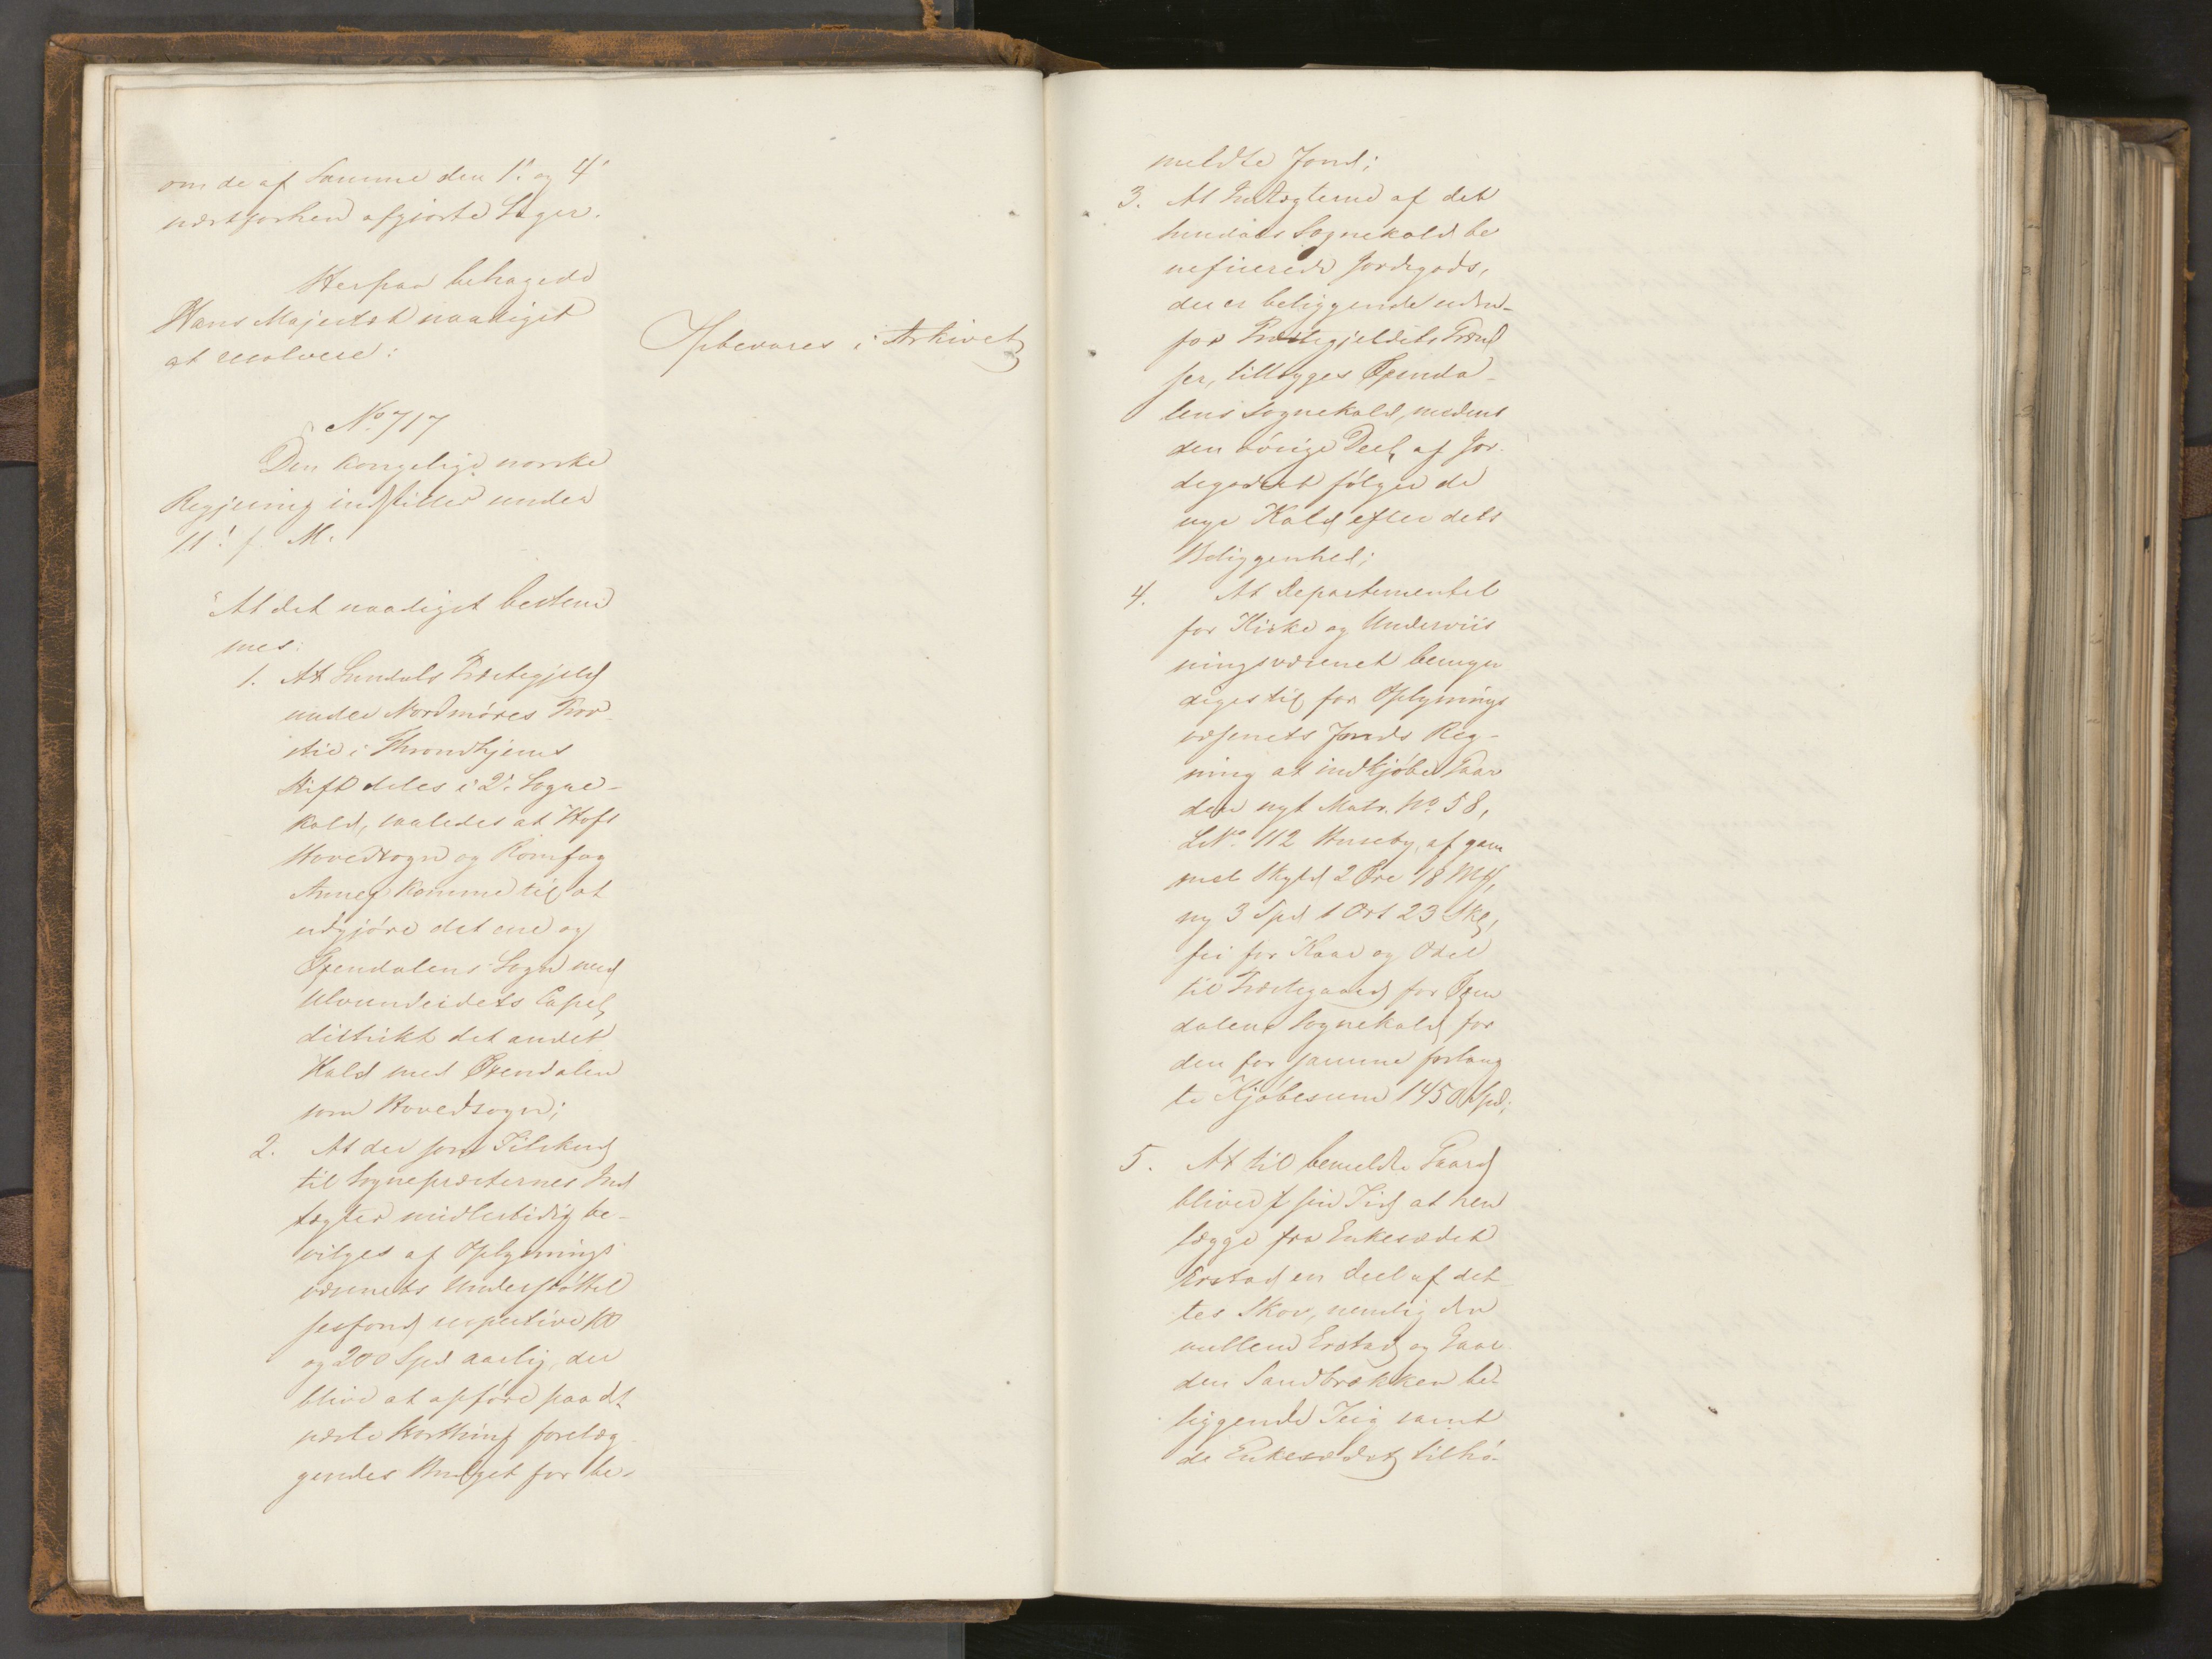 om de af Samme den 1! og 4!
næstforhen afgjorte Sager.
Herpaa behagede
Hans Majestæt naadigst
at resolvere:
Opbevares i Arkivet
No 717
Den kongelige norske
Regjering indstiller under
11! f. M.
"At det naadigst bestem
mes:
1. At Sundals Præstegjeld
under Nordmöres Prov-
stie i Throndhjems
Stift deles i 2: Sogne-
kald, saaledes at Hofs
Hovedsogn og Romfog
Annex komme til at
udgjöre det ene og
Øxendalens Sogn med
Ulvundeidets Capel
distrikt det andet
Kald med Øxendalen
som Hovedsogn;
2. At der som Tilskud
til Sognepræsternes Ind
tægter midlertidig be-
vilges af Oplysnings
væsenets Understöttel
sesfond respective 100
og 200 Spd aarlig, der
blive at opföre paa det
næste Storthing forelæg
gendes Budget for be-
meldte Fond;
3. At Indtægterne af det
Sundals Sognekald be
neficerede Jordegods,
der er beliggende uden-
for Præstegjeldets Grænd
ser, tillægges Øxenda-
lens Sognekald, medens
den övrige Deel af Jor-
degodset fölger de
nye Kald efter dets
Beliggenhed;
4. At Departementet
for Kirke og Underviis
ningsvæsenet bemyn
diges til for Oplysnings
væsenets Fonds Reg-
ning at indkjöbe Gaar
den nyt Matr. No 58,
LNo 112 Huseby, af gam
mel Skyld 2 Øre 18 Mkl,
ny 3 Spd 1 Ort 23 Sk,
fri for Kaar og Odel
til Præstegaard for Øxen
dalens Sognekald for
den for samme forlang
te Kjöbesum 1450 Spd;
5. At til bemeldte Gaard
bliver i sin Tid at hen
lægge fra Enkesædet
Erstad en Deel af det
tes Skov, nemlig den
mellem Erstad og Gaar
den Sandbrækken be-
liggende Teig samt
de Enkesædet tilhö-